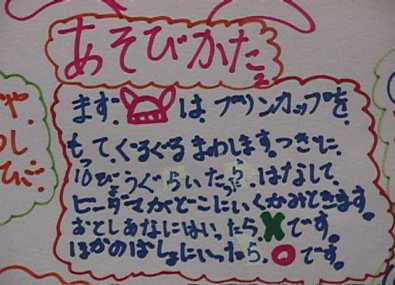 あそびかた
まず. は、プリンカップを、
もて、ぐるぐるまわします。つぎに、
10びょうぐらいたったら、はなして、
ビーダマがどこにいくかみときます。
おとしあなにはいったら、Xです。
ほかのばしょにいったら、○です。